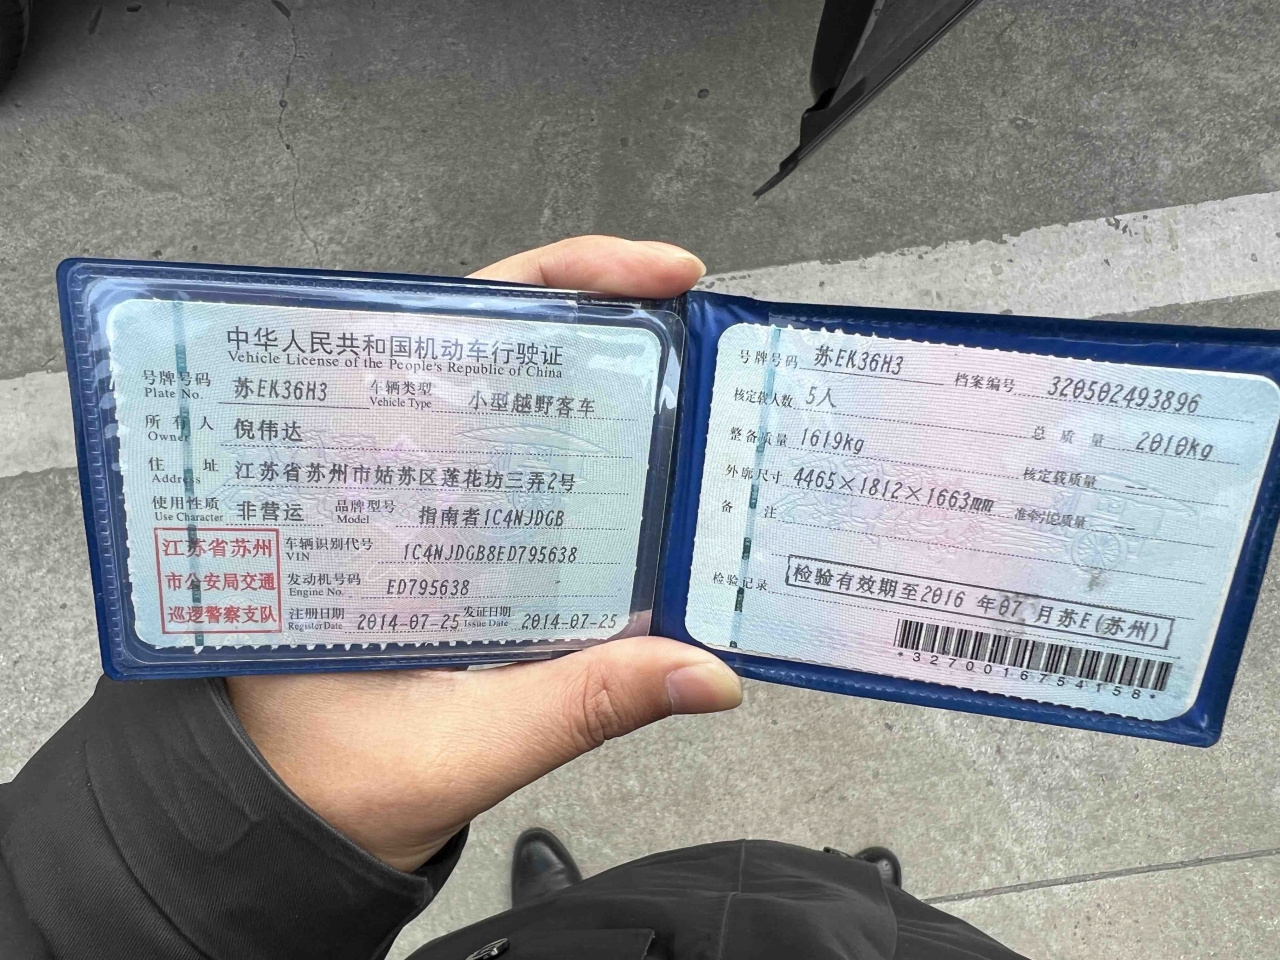 中华人民共和国机动车行驶证
Vehicle License of the People's Republic of China
号牌号码 苏EK36H3 车辆类型 小型越野客车
Plate No. Vehicle Type
所有人 倪伟达
Owner
住址 江苏省苏州市姑苏区莲花坊三弄2号
Address
使用性质 非营运 品牌型号 指南者1C4NJDGB
Use Character Model
江苏省苏州
市公安局交通
巡逻警察支队
车辆识别代号 1C4NJDGB8ED795638
VIN
发动机号码 ED795638
Engine No.
注册日期 2014-07-25 发证日期 2014-07-25
Register Date Issue Date
号牌号码 苏EK36H3 档案编号 320502493896
核定载人数 5人 总质量 2010kg
整备质量 1619kg 核定载质量 --
外廓尺寸 4465×1812×1663mm 准牵引总质量 --
备注
检验记录 检验有效期至2016年07月苏E(苏州)
*3270016754158*